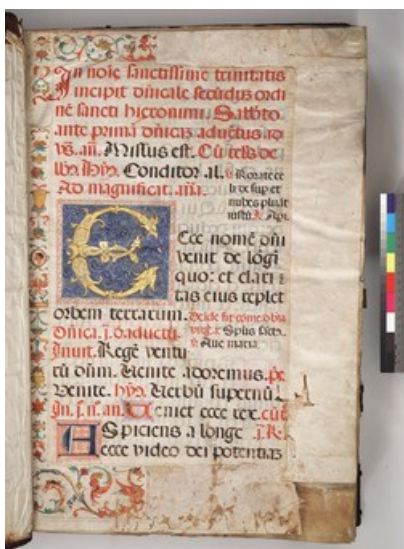 In noie sanctissime trinitatis
incipit dnicale secūduz ordi
nē sancti hieronimi. Sabbto
ante primā dnicaz aduētus ad
vs. an. Missus est. Cū
Conditor al. v. Rorate ce
li desup et
nubes pluāt
iustū.
Ad magnificat. ana.
Ecce nomē dn̄i
venit de lōgī
quo: et clari
tas eius replet
orbem terrarum.
Dnica. j. d. aduētu. Spūs sctūs.
Inuit. Regē ventu Aue maria.
rū dūm. Uenite adoremus. ps
Uenite. hyn. Uerbū supernū.
In. j. n. an. Ueniet ecce rex.
Aspiciens a longe j. R.
ecce video dei potentiaz